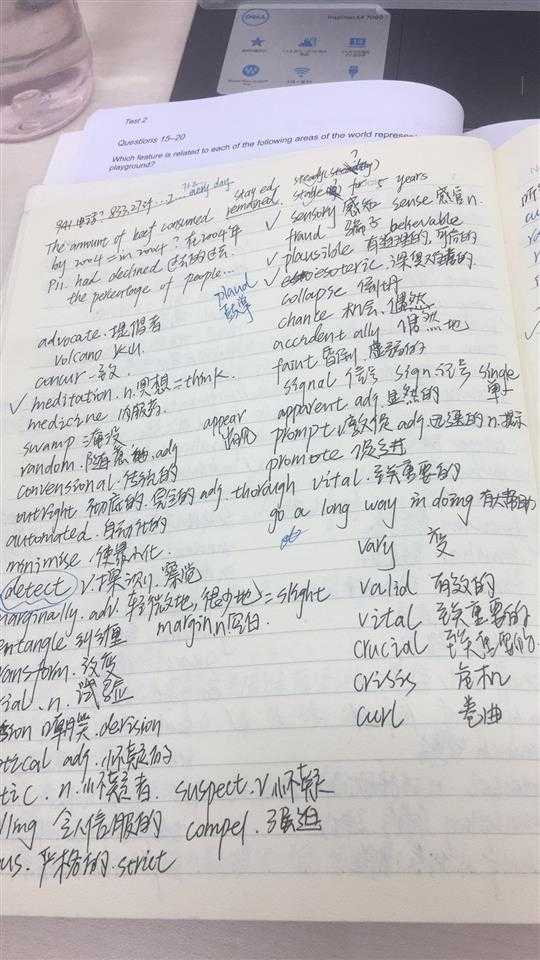 DELL
Inspiron 14 7000
Test 2
Questions 15–20
Which feature is related to each of the following areas of the world represen
playground?
every day
The amount of beef consumed
stayed
remained
steady
stable
for 5 years
by 2004 = in 2004? 在2004年
had declined
the percentage of people...
✓ sensory 感知 sense 感官 n.
fraud 骗子 believable
✓ plausible 有道理的, 可信的
✓ esoteric. 深奥难懂的
plaud
鼓掌
collapse 倒坍
chance 机会. 偶然
accrdent ally 偶然地
faint 昏倒. 虚弱的
signal 信号 sign. 记号 single
单
apparent adj 显然的
appear
出现
prompt v. 敦促 adj. 迅速的 n. 提示
promote 促进
vital. 至关重要的
go a long way in doing 有大帮助
advocate. 提倡者
volcano 火山
concur 一致
✓ meditation. n. 冥想 = think.
medicine 内服药
swamp 淹没
random. 随意地. adj
convensional. 传统的
outright 彻底的. 完全的 adj. thorough
automated. 自动化的
minimise. 使最小化.
detect v. 探测. 察觉
marginally. adv. 轻微地, 很少地) = slight
margin. n 空白.
entangle 纠缠
ransform. 改变
ial. n. 试验
sion 嘲笑. derision
tical adj. 怀疑的
tic. n. 怀疑者. suspect. v 怀疑
lling 令人信服的 compel. 强迫
us. 严格的. strict
vary 变
valid 有效的
vital 至关重要的
crucial 至关重要的
crisis 危机
curl 卷曲